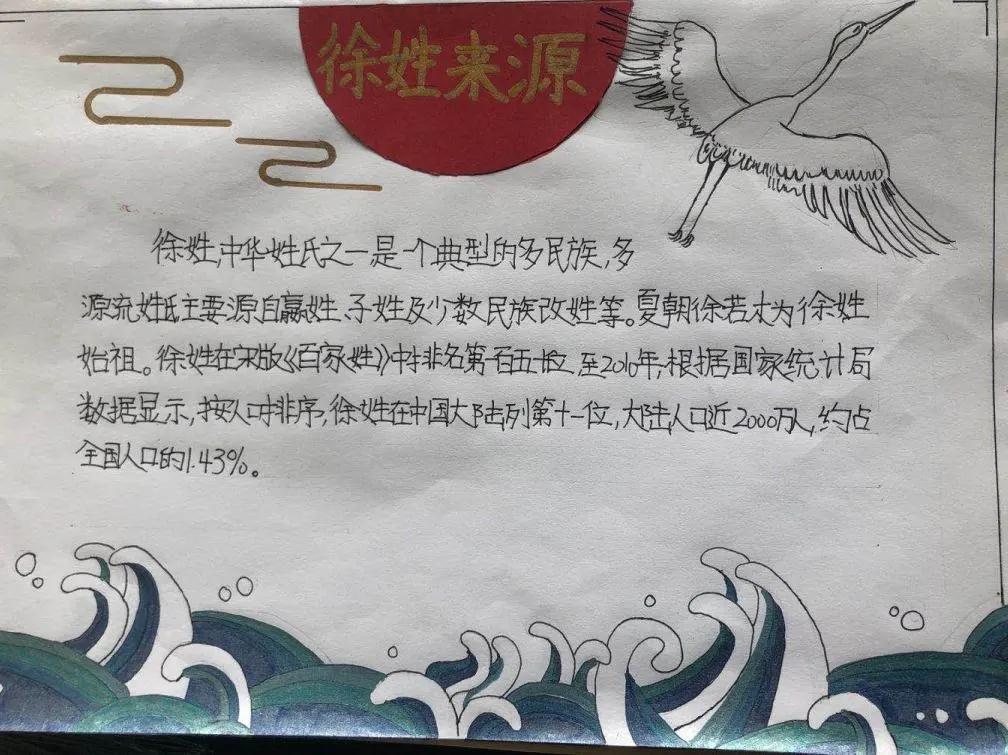 徐姓来源
徐姓,中华姓氏之一是一个典型的多民族,多
源流姓氏主要源自嬴姓、子姓及少数民族改姓等。夏朝徐若木为徐姓
始祖。徐姓在宋版《百家姓》中排名第一百五十位 至2010年,根据国家统计局
数据显示,按人口排序,徐姓在中国大陆列第十一位,大陆人口近2000万人,约占
全国人口的1.43%。